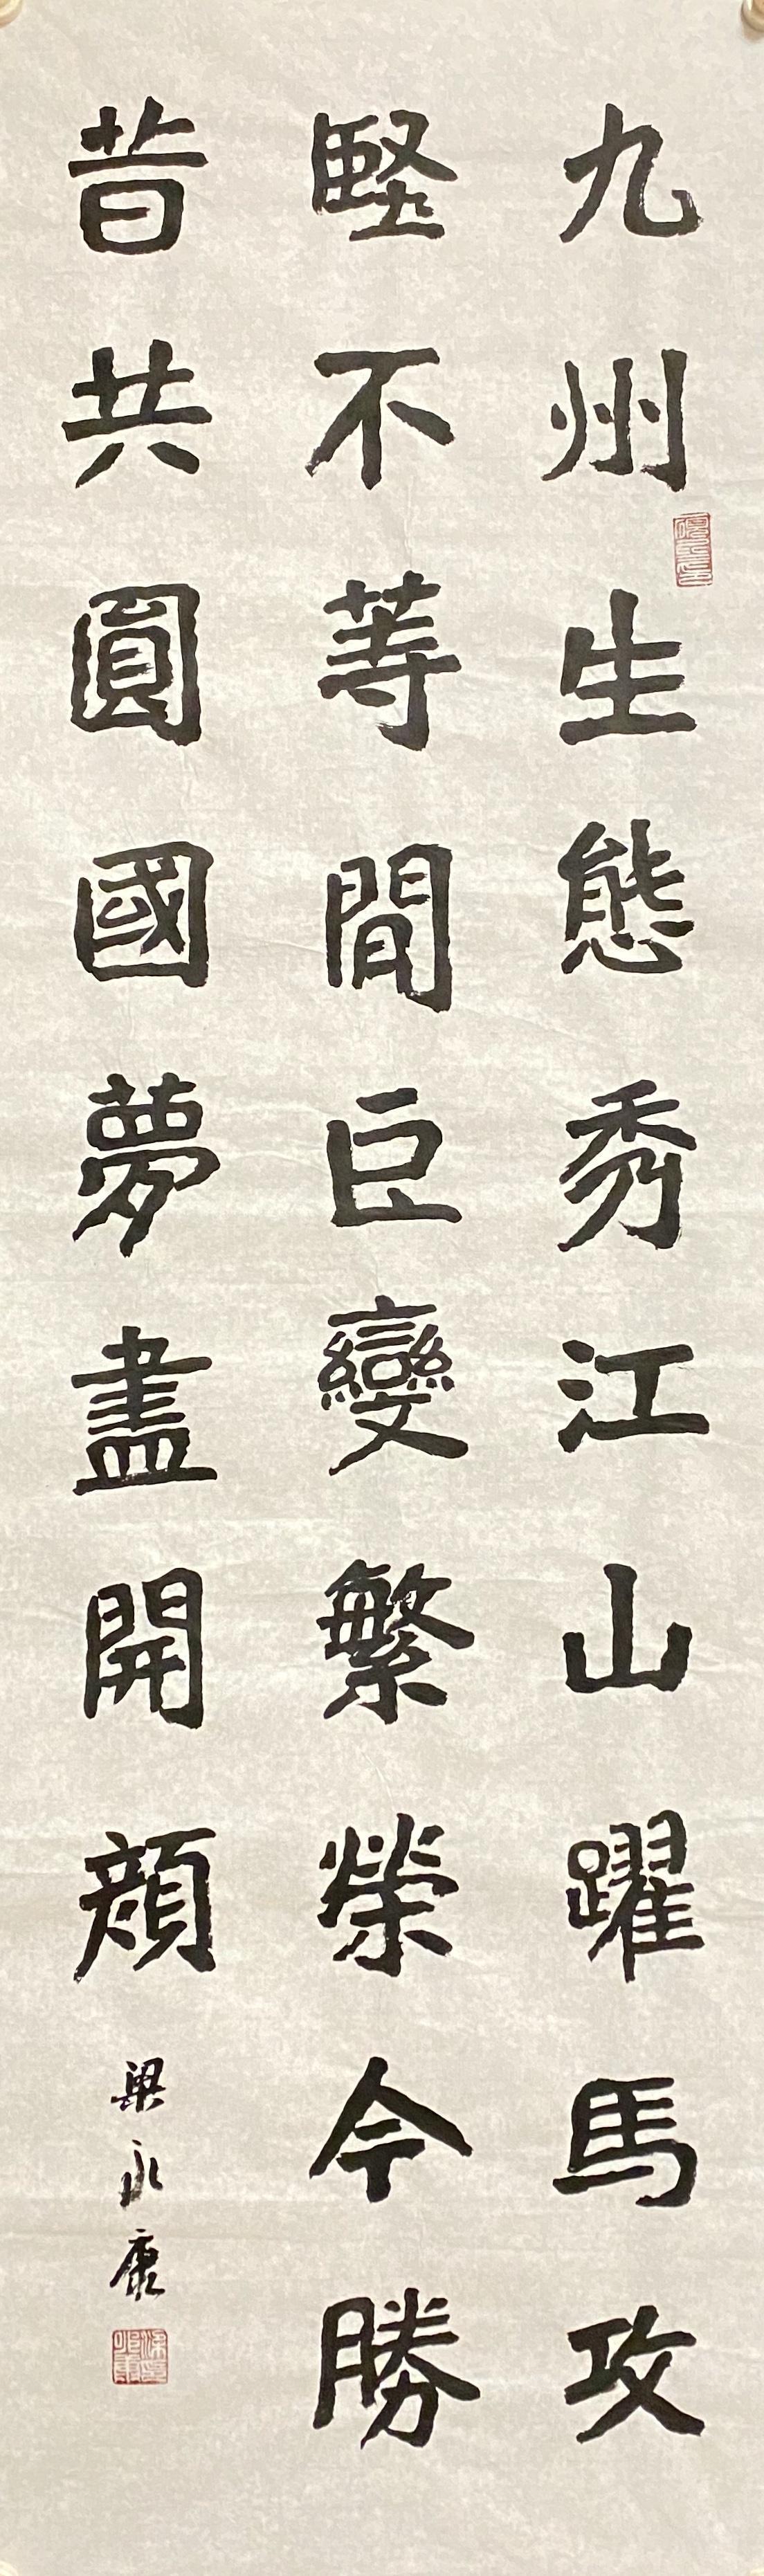 九州生態秀江山躍馬攻
堅不等間巨變繁榮今勝
昔共圓國夢盡開顏
梁永康